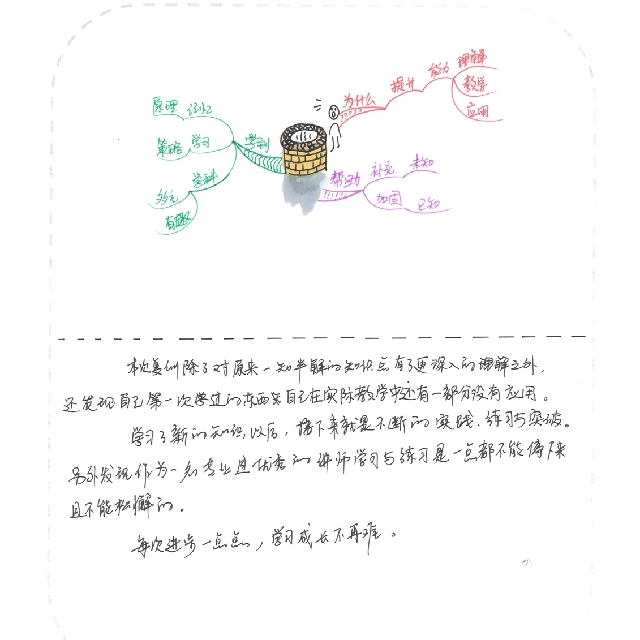 为什么
提升
能力
理解
教学
应用
帮助
补充
未知
加固
已知
学到
记忆
原理
学习
策略
学科
多元
有趣
本次复训除了对原来一知半解的知识点有了更深入的理解之外,
还发现自己第一次学过的东西在自己在实际教学中还有一部分没有应用。
学习了新的知识以后，接下来就是不断的实践、练习与突破。
另外发现作为一名专业且优秀的讲师学习与练习是一点都不能停下来
且不能松懈的.
每次进步一点点，学习成长不再难。